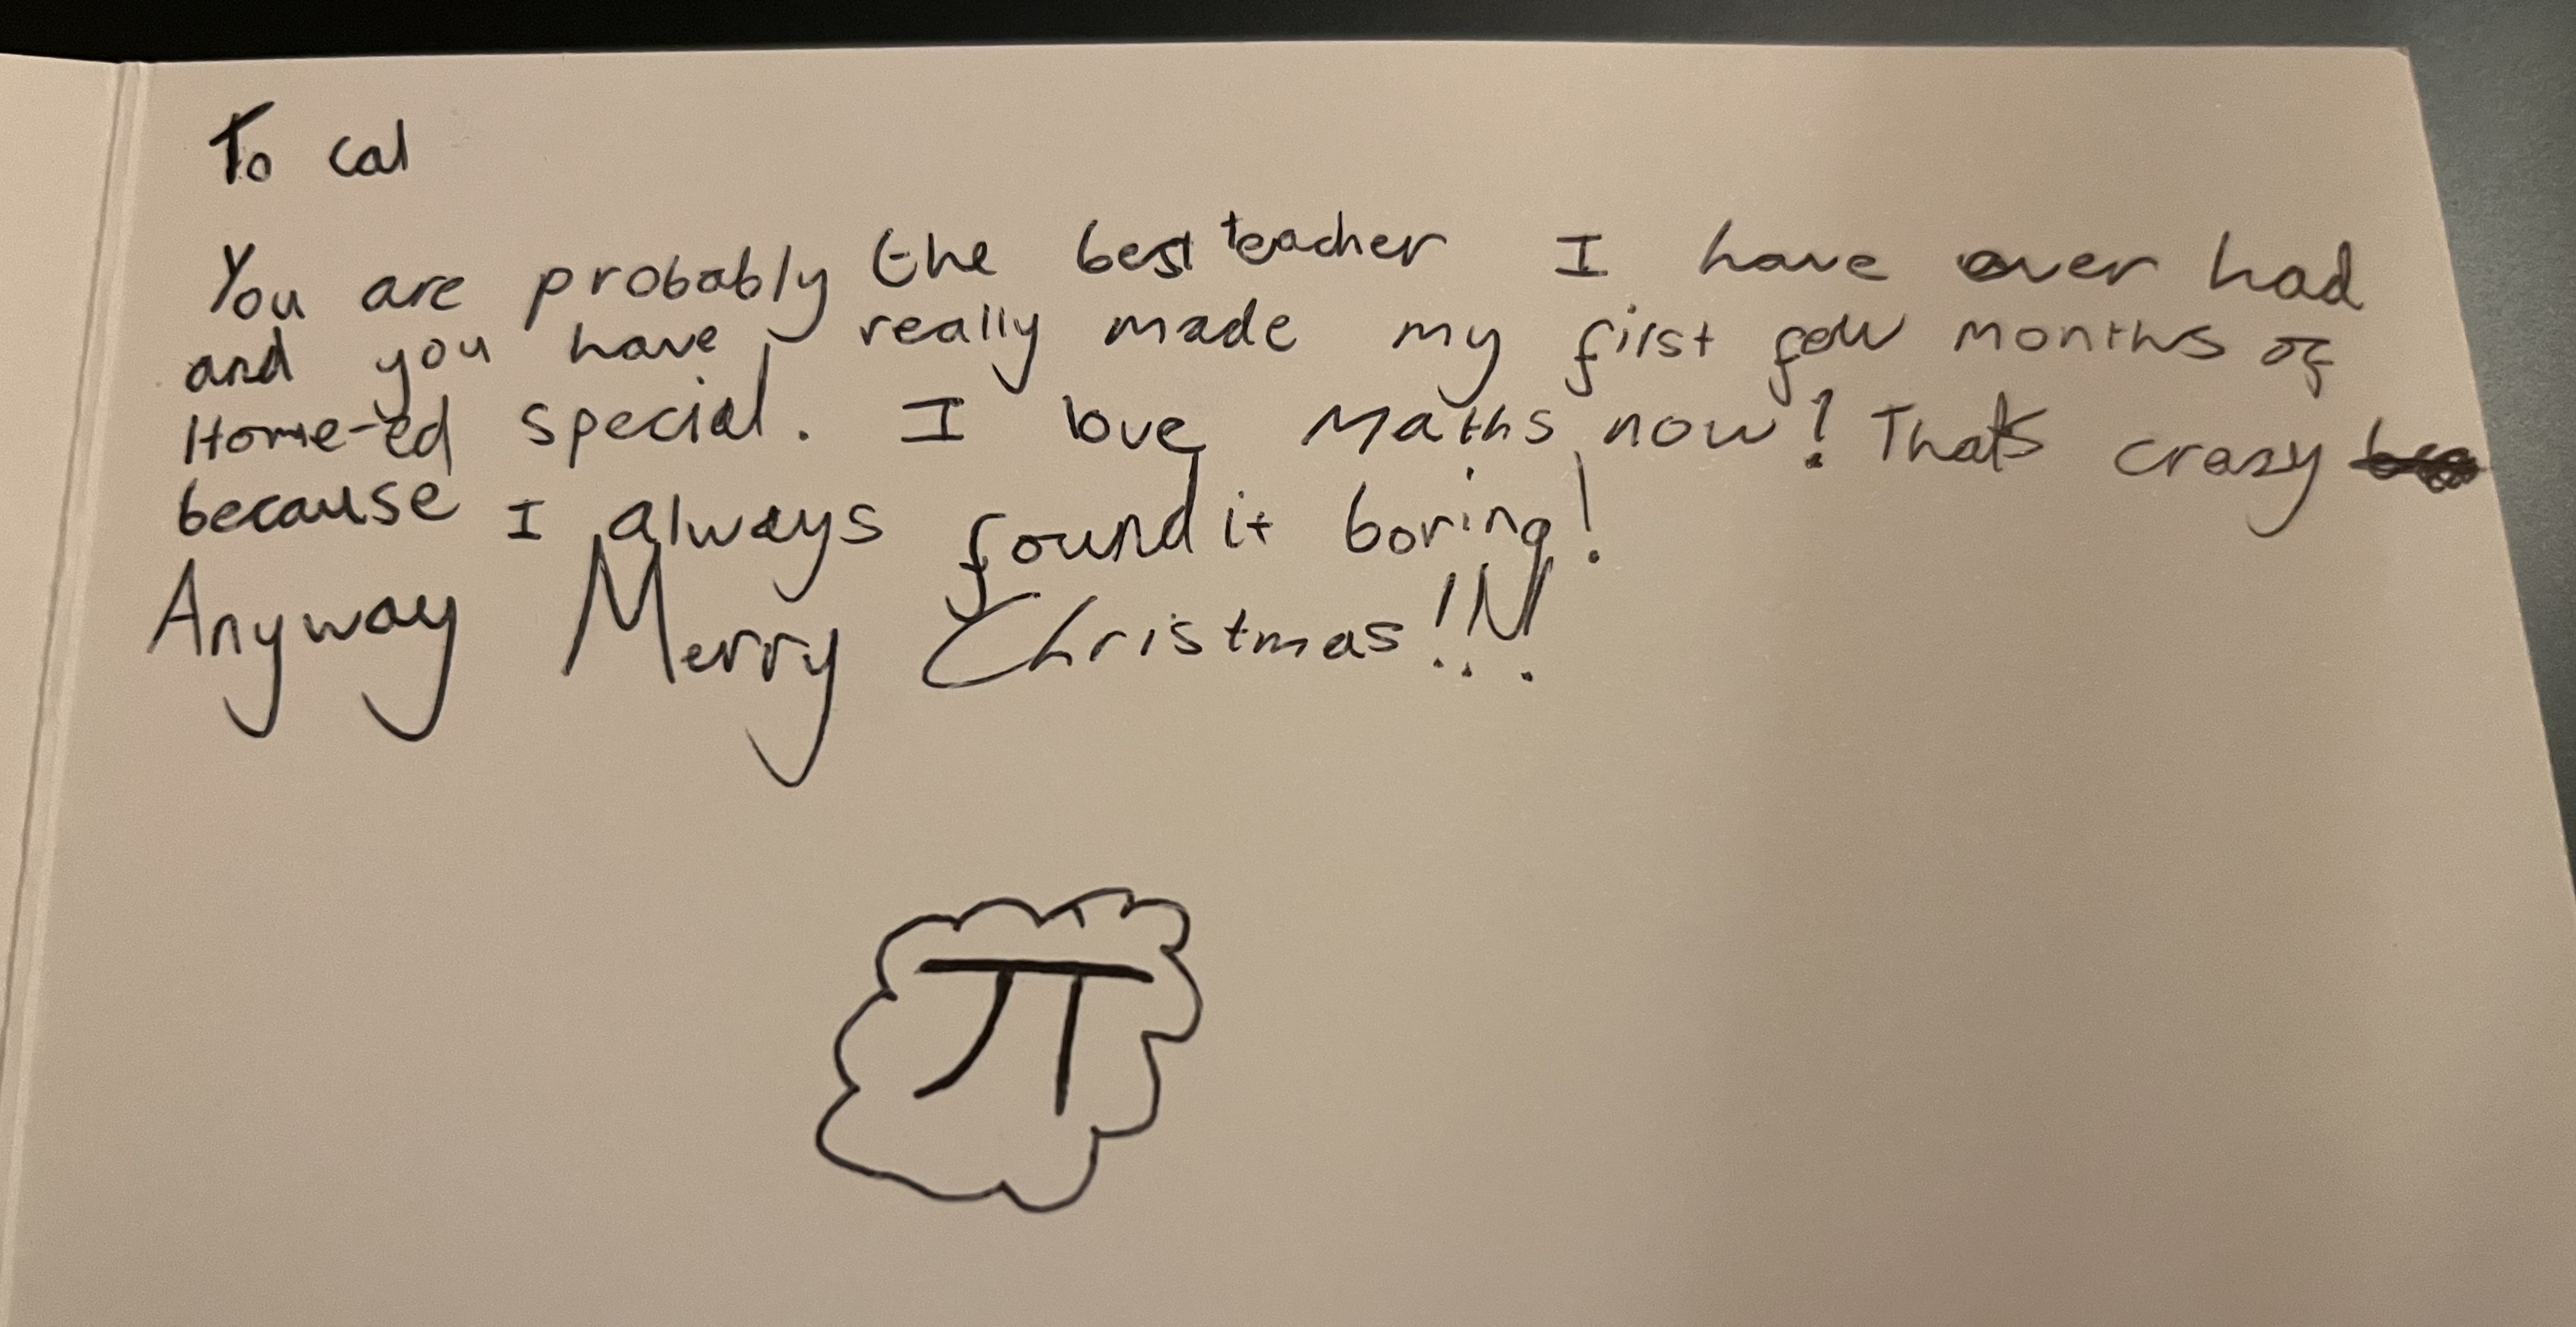 To cal
You are probably the best teacher I have ever had
and you have really made my first few months of
Home-ed special. I love Maths now! That's crazy
because I always found it boring!
Anyway Merry Christmas!!!
π